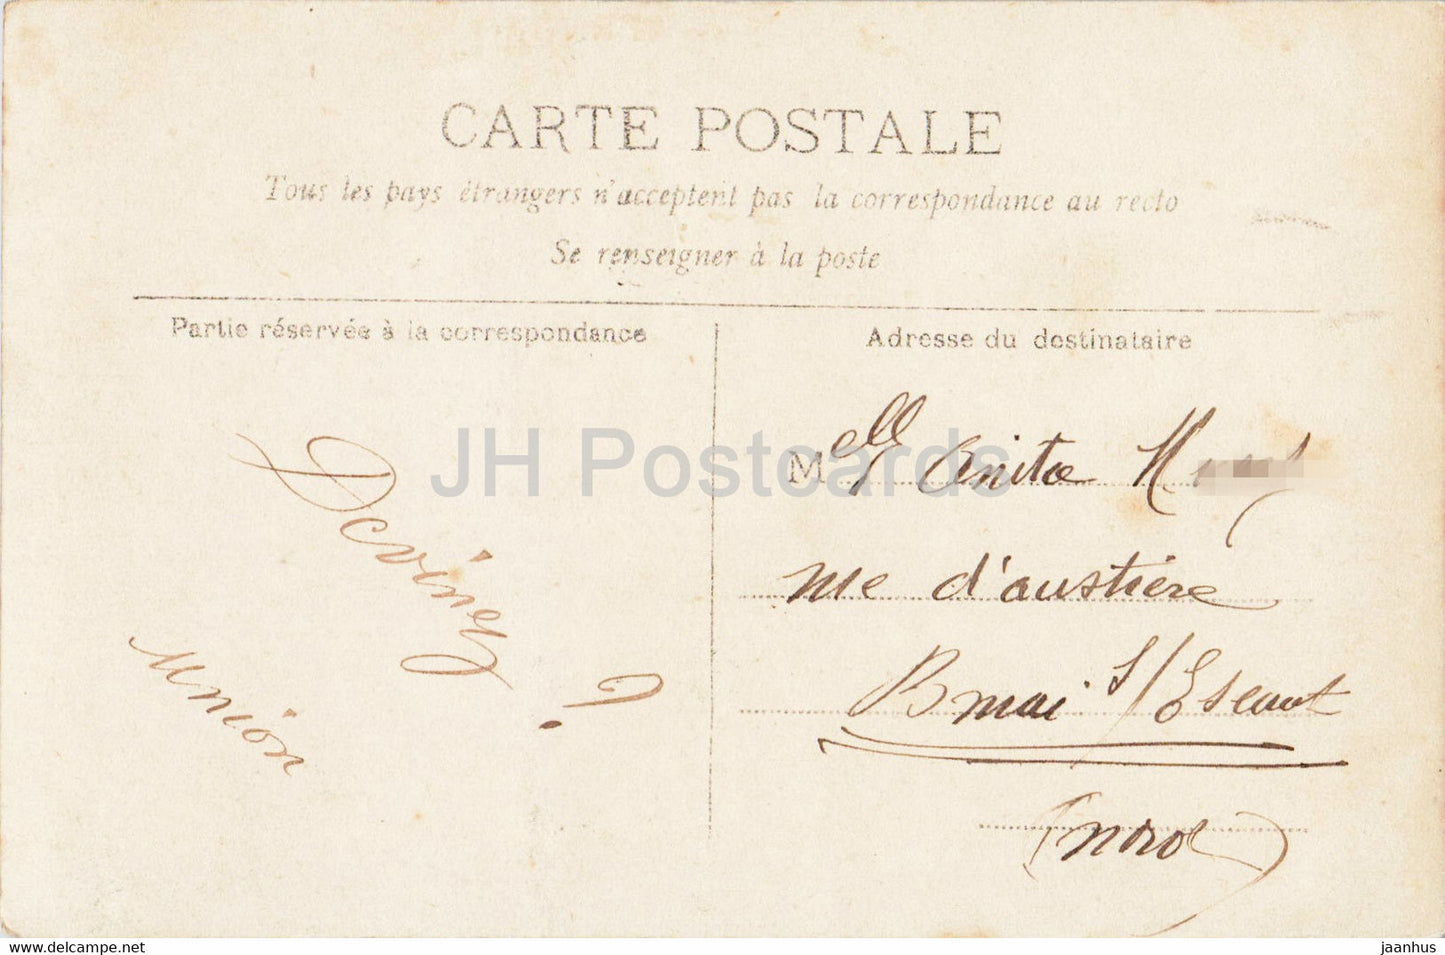 CARTE POSTALE
Tous les pays étrangers n'acceptent pas la correspondance au recto
Se renseigner à la poste
Partie réservée à la correspondance
Adresse du destinataire
Devinez ?
union
Melle Anita
rue d'austière
s/Escaut
(nord)
JH Postcards
www.delcampe.net
jaanhus